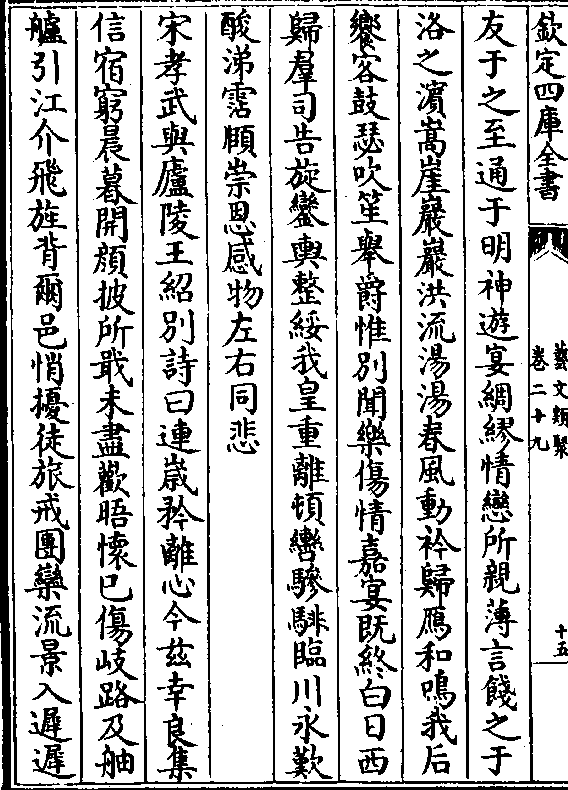 欽定四庫全書
藝文類聚
卷二十九
十五
友于之至通于明神遊宴綢繆情戀所親薄言餞之于
洛之濵嵩崖巖巖洪流湯湯春風動衿歸鴈和鳴我后
饗客鼓瑟吹笙舉爵惟别聞樂傷情嘉宴既終白日西
歸羣司告旋鑾輿整綏我皇重離頓轡驂騑臨川永歎
酸涕霑頤崇恩感物左右同悲
宋孝武與廬陵王紹别詩曰連嵗矜離心今兹幸良集
信宿窮晨暮開顔披所戢未盡歡晤懷已傷岐路及舳
艫引江介飛旌背爾邑悄擾徒旅戒團欒流景入遲遲